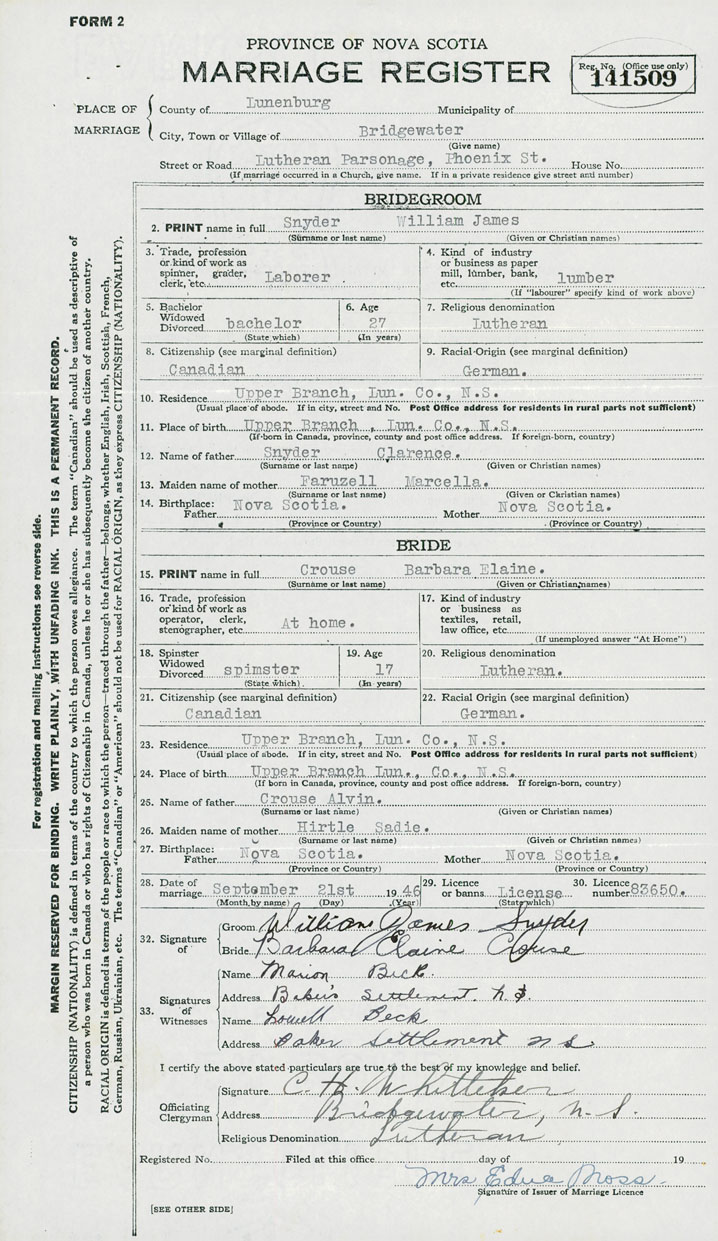 FORM 2
PROVINCE OF NOVA SCOTIA
MARRIAGE REGISTER
Reg. No. (Office use only)
141509
PLACE OF MARRIAGE
County of Lunenburg Municipality of
City, Town or Village of Bridgewater
(Give name)
Street or Road Lutheran Parsonage, Phoenix St. House No.
(If marriage occurred in a Church, give name. If in a private residence give street and number)
BRIDEGROOM
2. PRINT name in full Snyder William James
(Surname or last name) (Given or Christian names)
3. Trade, profession or kind of work as spinner, grader, clerk, etc. Laborer
4. Kind of industry or business as paper mill, lumber, bank, etc. lumber
(If "labourer" specify kind of work above)
5. Bachelor Widowed Divorced bachelor
(State which)
6. Age 27
(In years)
7. Religious denomination
Lutheran
8. Citizenship (see marginal definition)
Canadian
9. Racial-Origin (see marginal definition)
German.
10. Residence Upper Branch, Lun. Co., N.S.
(Usual place of abode. If in city, street and No. Post Office address for residents in rural parts not sufficient)
11. Place of birth Upper Branch , Lun. Co., N.S.
(If born in Canada, province, county and post office address. If foreign-born, country)
12. Name of father Snyder Clarence.
(Surname or last name) (Given or Christian names)
13. Maiden name of mother Faruzell Marcella.
(Surname or last name) (Given or Christian names)
14. Birthplace: Father Nova Scotia. Mother Nova Scotia.
(Province or Country) (Province or Country)
BRIDE
15. PRINT name in full Crouse Barbara Elaine.
(Surname or last name) (Given or Christian names)
16. Trade, profession or kind of work as operator, clerk, stenographer, etc. At home.
17. Kind of industry or business as textiles, retail, law office, etc.
(If unemployed answer "At Home")
18. Spinster Widowed Divorced spimster
(State which)
19. Age 17
(In years)
20. Religious denomination
Lutheran.
21. Citizenship (see marginal definition)
Canadian
22. Racial Origin (see marginal definition)
German.
23. Residence Upper Branch, Lun. Co., N.S.
(Usual place of abode. If in city, street and No. Post Office address for residents in rural parts not sufficient)
24. Place of birth Upper Branch Lun., Co., N.S.
(If born in Canada, province, county and post office address. If foreign-born, country)
25. Name of father Crouse Alvin.
(Surname or last name) (Given or Christian names)
26. Maiden name of mother Hirtle Sadie.
(Surname or last name) (Given or Christian names)
27. Birthplace: Father Nova Scotia. Mother Nova Scotia.
(Province or Country) (Province or Country)
28. Date of marriage September 21st 1946
(Month by name) (Day) (Year)
29. Licence or banns License
(State which)
30. Licence number 83650.
32. Signature of
Groom William James Snyder
Bride Barbara Elaine Crouse
33. Signatures of Witnesses
Name Marion Beck.
Address Baker's Settlement. N.S.
Name Lowell Beck
Address Baker Settlement N S.
I certify the above stated particulars are true to the best of my knowledge and belief.
Officiating Clergyman
Signature C. H. Whitteker
Address Bridgewater, N. S.
Religious Denomination Lutheran
Registered No. Filed at this office day of 19
Mrs Edna Moss
Signature of Issuer of Marriage Licence
[SEE OTHER SIDE]
For registration and mailing instructions see reverse side.
MARGIN RESERVED FOR BINDING. WRITE PLAINLY, WITH UNFADING INK. THIS IS A PERMANENT RECORD.
CITIZENSHIP (NATIONALITY) is defined in terms of the country to which the person owes allegiance. The term "Canadian" should be used as descriptive of
a person who was born in Canada or who has rights of Citizenship in Canada, unless he or she has subsequently become the citizen of another country.
RACIAL ORIGIN is defined in terms of the people or race to which the person—traced through the father—belongs, whether English, Irish, Scottish, French,
German, Russian, Ukrainian, etc. The terms "Canadian" or "American" should not be used for RACIAL ORIGIN, as they express CITIZENSHIP (NATIONALITY).